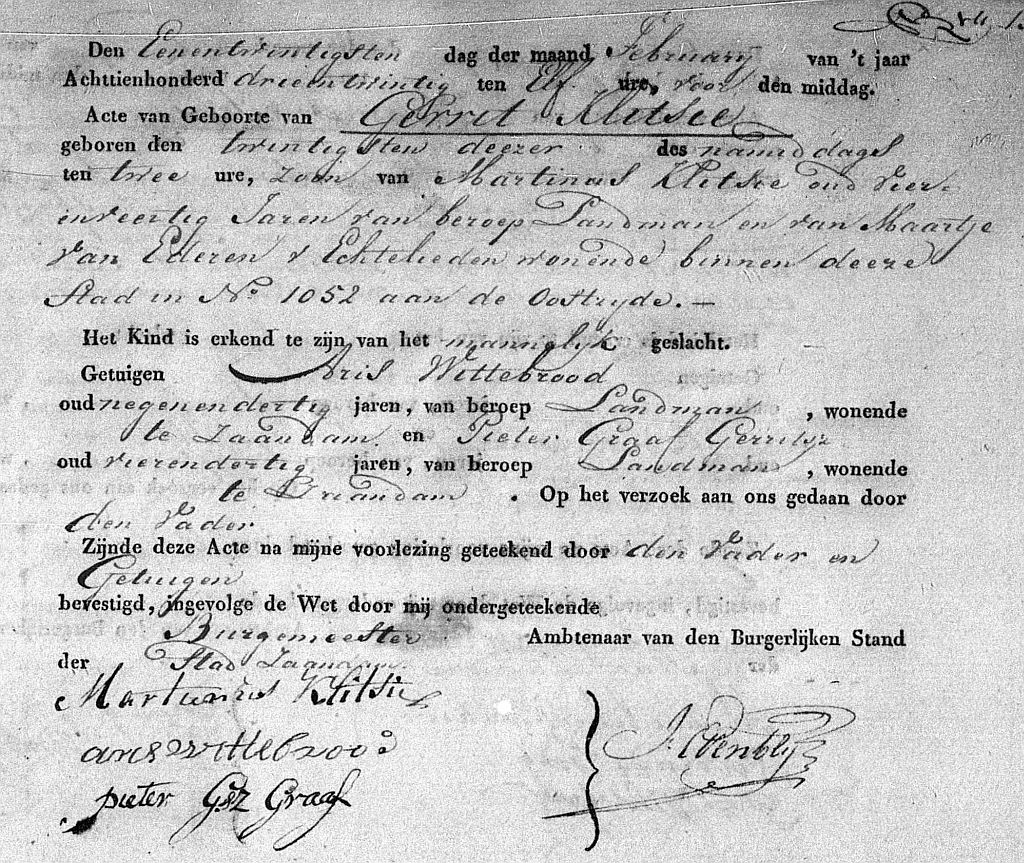 Den Eenentwintigsten dag der maand February van 't jaar
Achttienhonderd drieentwintig ten Elf ure, voor den middag.
Acte van Geboorte van Gerret Klitsie
geboren den twintigsten deezer des namiddags
ten twee ure, Zoon van Martinus Klitsie oud vier
enveertig Jaren van beroep Landman en van Maartje
van Ederen Echtelieden wonende binnen deeze
Stad in No 1052 aan de Oostzyde. —
Het Kind is erkend te zijn van het mannelijk geslacht.
Getuigen Aris Wittebrood
oud negenendertig jaren, van beroep Landman, wonende
te Zaandam en Pieter Graaf Gerritsz
oud vierendertig jaren, van beroep Landman, wonende
te Zaandam. Op het verzoek aan ons gedaan door
den Vader
Zijnde deze Acte na mijne voorlezing geteekend door den Vader en
Getuigen
bevestigd, ingevolge de Wet door mij ondergeteekende
Burgemeester Ambtenaar van den Burgerlijken Stand
der Stad Zaandam
Martinus Klitsie
aris wittebrood
pieter Gsz Graaf